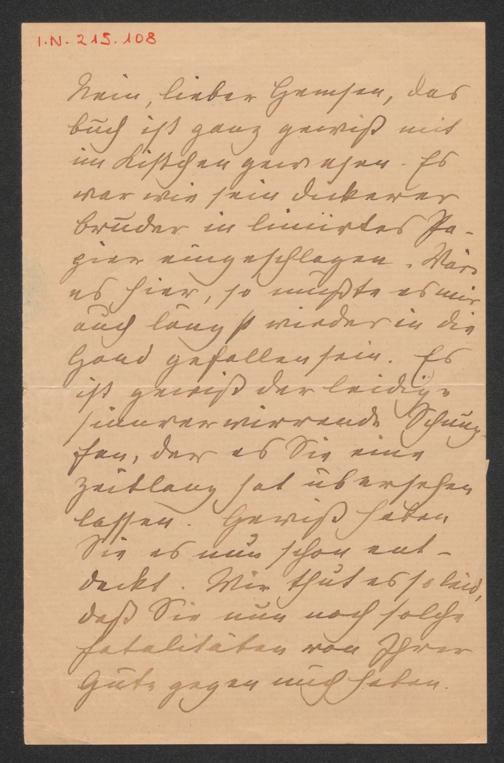 I.N. 215.108
Nein, lieber Hemsen, das
buch ist ganz gewiß mit
im Kistchen gewesen. Es
war wie sein dickerer
bruder in liniirtes Pa-
pier eingeschlagen. Wär
es hier, so müßte es mir
auch längst wieder in die
Hand gefallen sein. Es
ist gewiß der leidige
sinnverwirrende Schnup-
fen, der es Sie eine
zeitlang hat übersehen
lassen. Gewiß haben
Sie es nun schon ent-
deckt. Mir thut es so leid,
daß Sie nun noch solche
fatalitäten von Ihrer
Güte gegen mich haben.